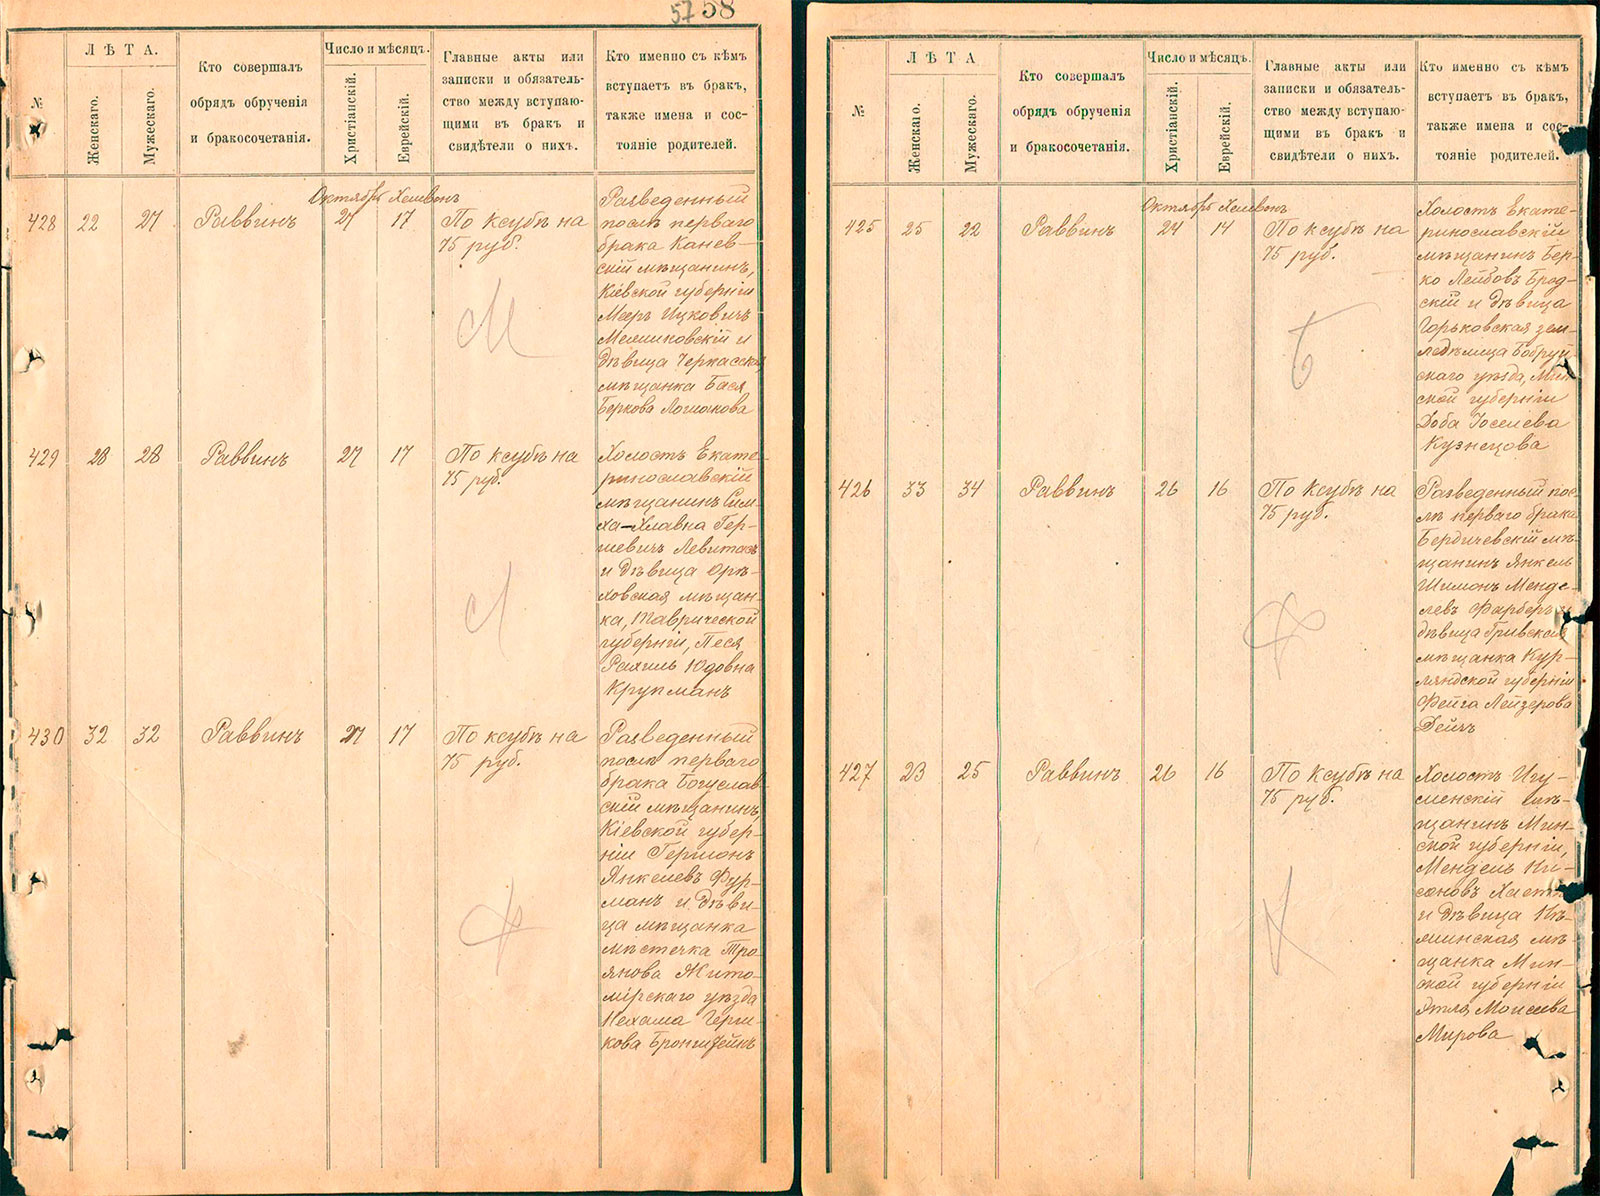 57 58
№
ЛѢТА.
Женскаго.
Мужескаго.
Кто совершалъ
обрядъ обрученія
и бракосочетанія.
Число и мѣсяцъ.
Христіанскій.
Еврейскій.
Главные акты или
записки и обязатель-
ство между вступаю-
щими въ бракъ и
свидѣтели о нихъ.
Кто именно съ кѣмъ
вступаетъ въ бракъ,
также имена и сос-
тояніе родителей.
Октябрь Хешвонъ
428 22 27 Раввинъ 27 17
По ксубѣ на
75 руб.
Разведенный
послѣ перваго
брака Канев-
скій мѣщанинъ,
Кіевской губерніи
Мееръ Ицковичъ
Мешиковскій и
дѣвица Черкасская
мѣщанка Бася
Беркова Ломакова
М
429 28 28 Раввинъ 27 17
По ксубѣ на
75 руб.
Холостъ Екате-
ринославскій
мѣщанинъ Сим-
ха-Хлавна Гер-
шевичъ Левитасъ
и дѣвица Орѣ-
ховская мѣщан-
ка, Таврической
губерніи, Песя
Рахиль Юдовна
Крупманъ
Л
430 32 32 Раввинъ 27 17
По ксубѣ на
75 руб.
Разведенный
послѣ перваго
брака Богуслав-
скій мѣщанинъ,
Кіевской губер-
ніи Гершонъ
Янкелевъ Фур-
манъ и дѣви-
ца мѣщанка
мѣстечка Тро-
янова Жито-
мірскаго уѣзда
Нехама Герш-
кова Бронштейнъ
Ф
№
ЛѢТА
Женскаго.
Мужескаго.
Кто совершалъ
обрядъ обрученія
и бракосочетанія.
Число и мѣсяцъ.
Христіанскій.
Еврейскій.
Главные акты или
записки и обязатель-
ство между вступаю-
щими въ бракъ и
свидѣтели о нихъ.
Кто именно съ кѣмъ
вступаетъ въ бракъ,
также имена и сос-
тояніе родителей.
Октябрь Хешвонъ
425 25 22 Раввинъ 24 14
По ксубѣ на
75 руб.
Холостъ Екате-
ринославскій
мѣщанинъ Бер-
ко Лейбовъ Брод-
скій и дѣвица
Горьковская зем-
ледѣлица Бобруй-
скаго уѣзда, Мин-
ской губерніи
Доба Іоселева
Кузнецова
Б
426 33 34 Раввинъ 26 16
По ксубѣ на
75 руб.
Разведенный пос-
лѣ перваго брака
Бердичевскій мѣ-
щанинъ Янкель
Шимонъ Менде-
левъ Фарберъ и
дѣвица Гривская
мѣщанка Кур-
ляндской губерніи
Фейга Лейзерова
Дейчъ
Ф
427 23 25 Раввинъ 26 16
По ксубѣ на
75 руб.
Холостъ Игу-
менскій мѣ-
щанинъ Мин-
ской губерніи,
Мендель Ни-
соновъ
и дѣвица
мѣ-
щанка Мин-
ской губерніи
Этля Моисеева
Мирова
Х